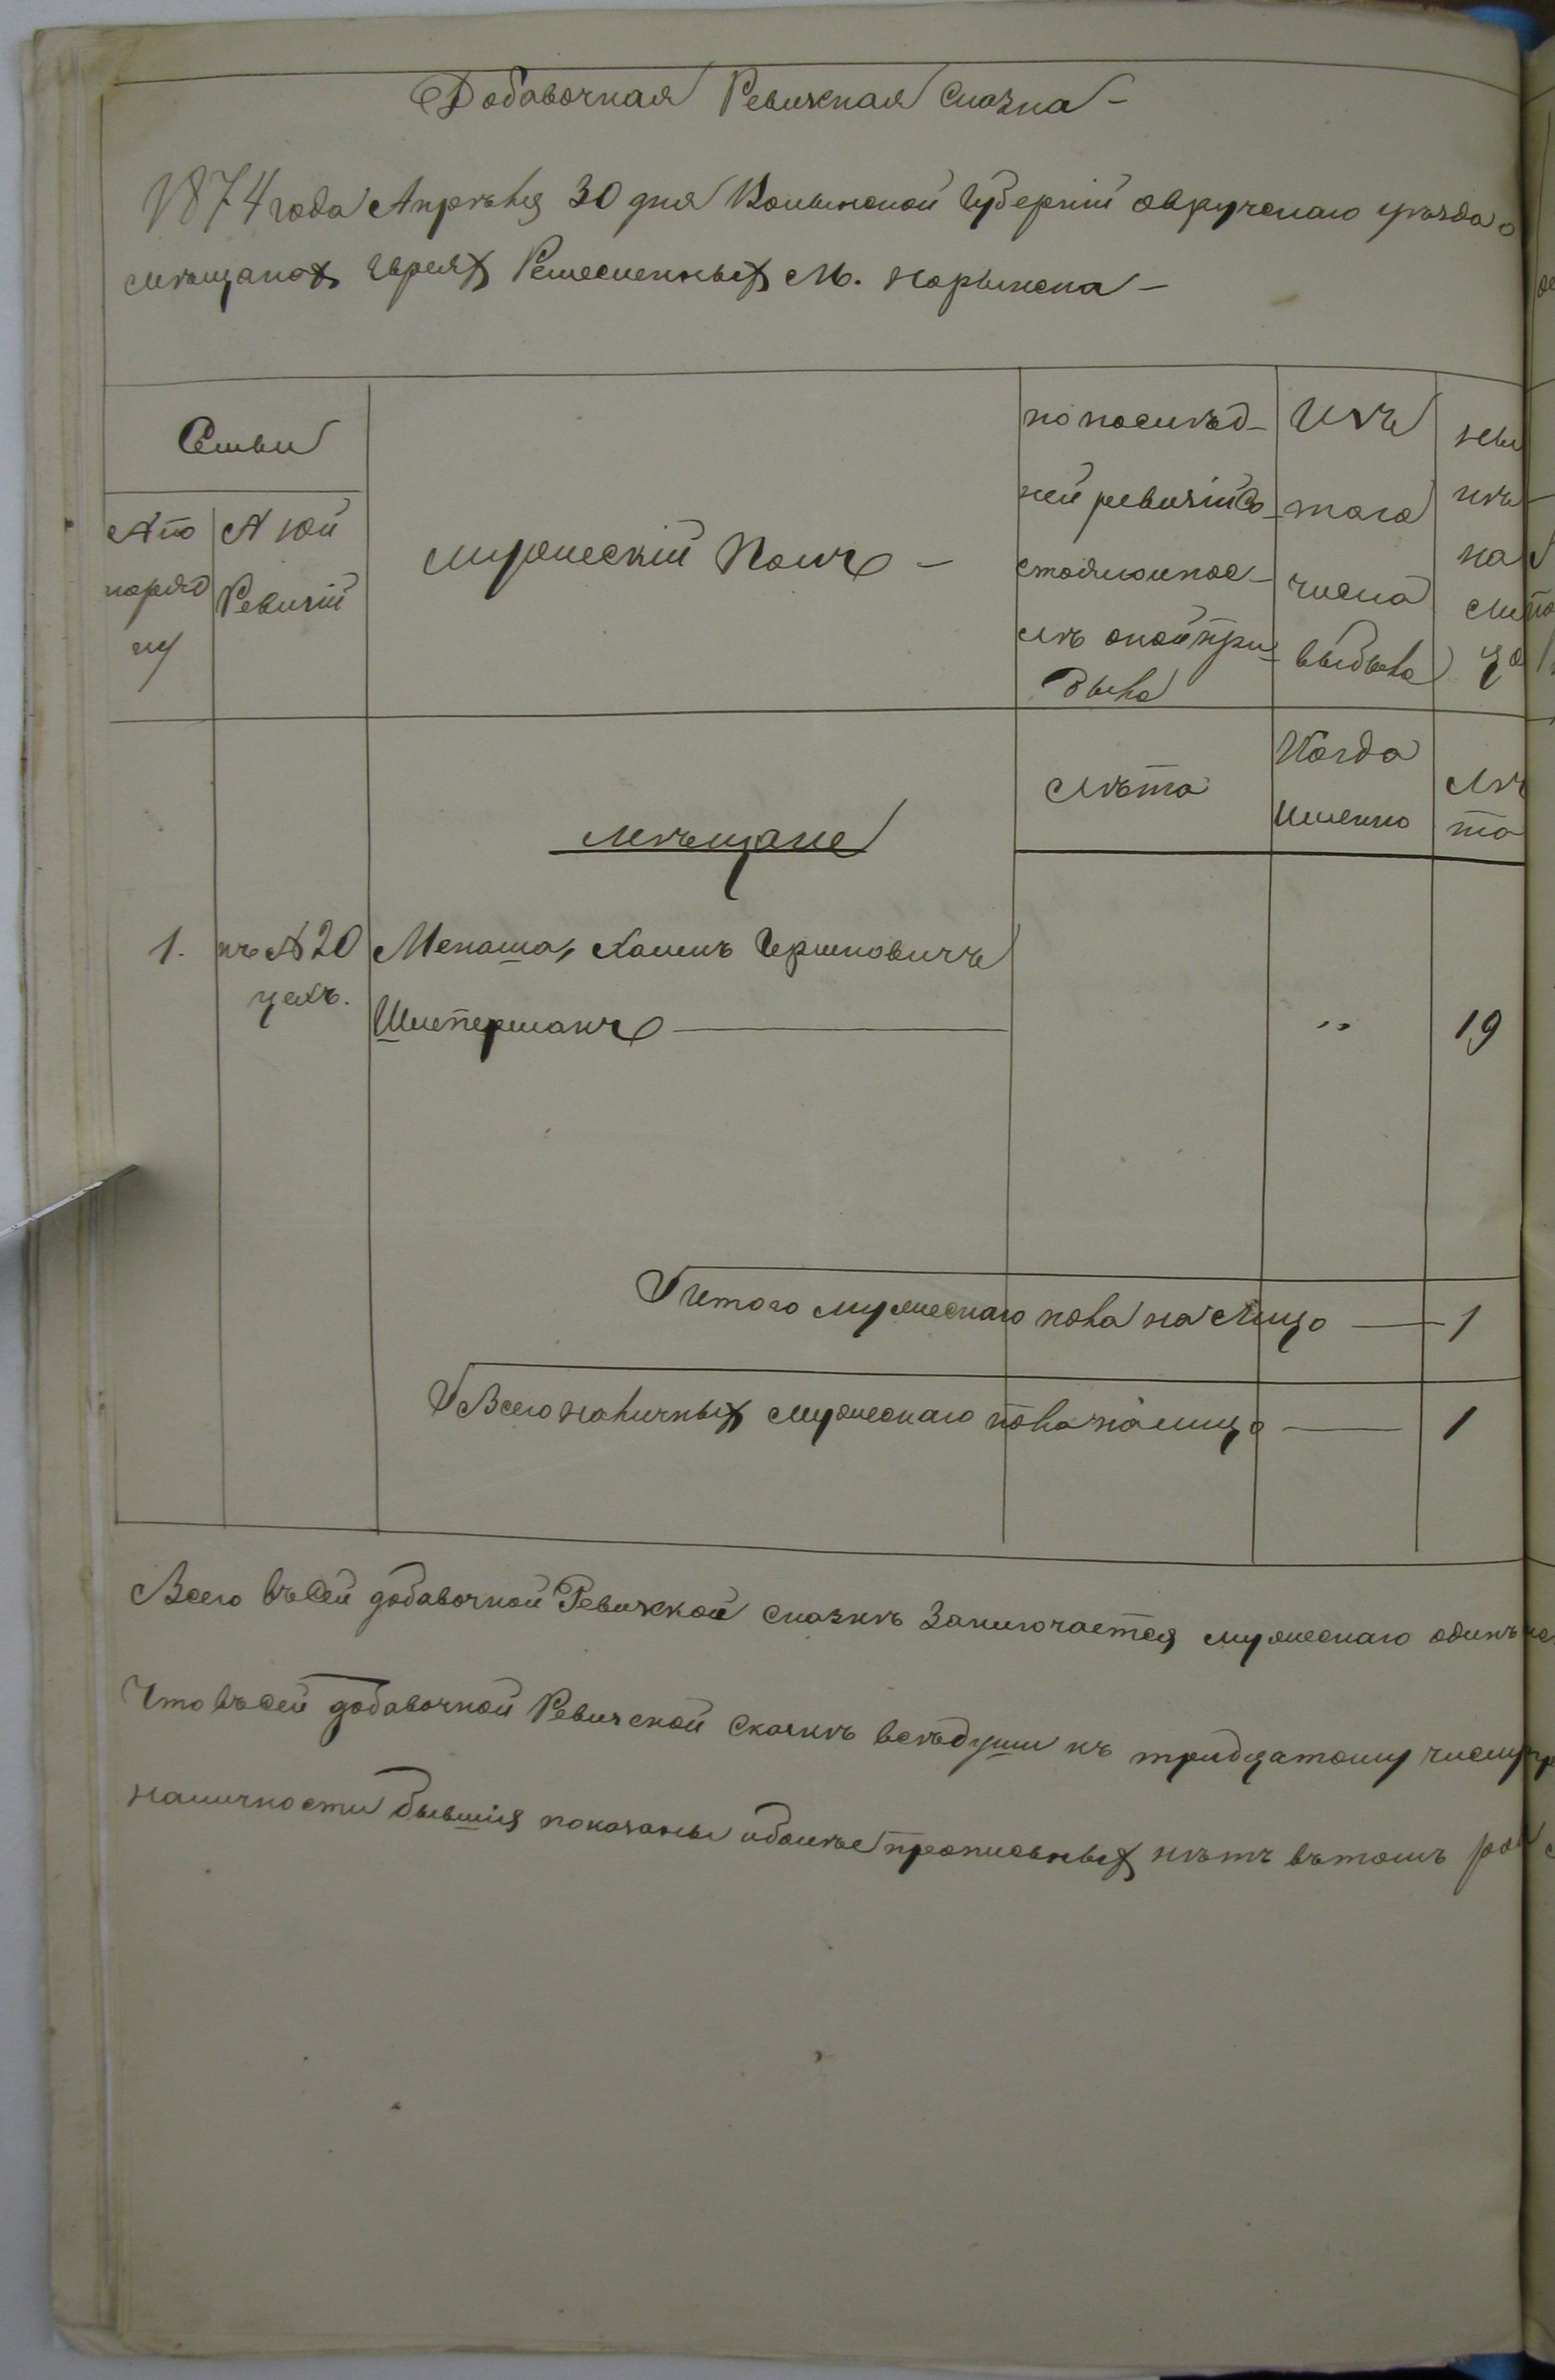 Добавочная Ревизская Сказка
1874 года Апрѣля 30 дня Волынской Губерніи овручскаго уѣзда о
мѣщанах евреях Ремесленных М. Норынска
Семьи
№ по
поряд
ку
№ 10й
Ревизіи
мужескій Полъ
по послѣд-
ней ревизіи Со
стояло и пос-
лѣ оной при
было
Изъ
того
числа
выбыло
ны
нѣ
на
ли
цо
лѣта
Когда
Именно
Лѣ
та
мѣщане
1. къ №20 Менаша, Хаимъ Гершковичъ
цехъ.
Шистерманъ " 19
Итого мужескаго пола на Лицо 1
Всего наличных мужескаго пола на лицо 1
Всего въ Сей добавочной Ревизской сказкѣ Заключается мужескаго одинъ
Что въ сей добавочной Ревизской Сказкѣ всѣ души къ тридцатому числу
наличности бывшія показаны и болѣе прописных нѣтъ въ томъ